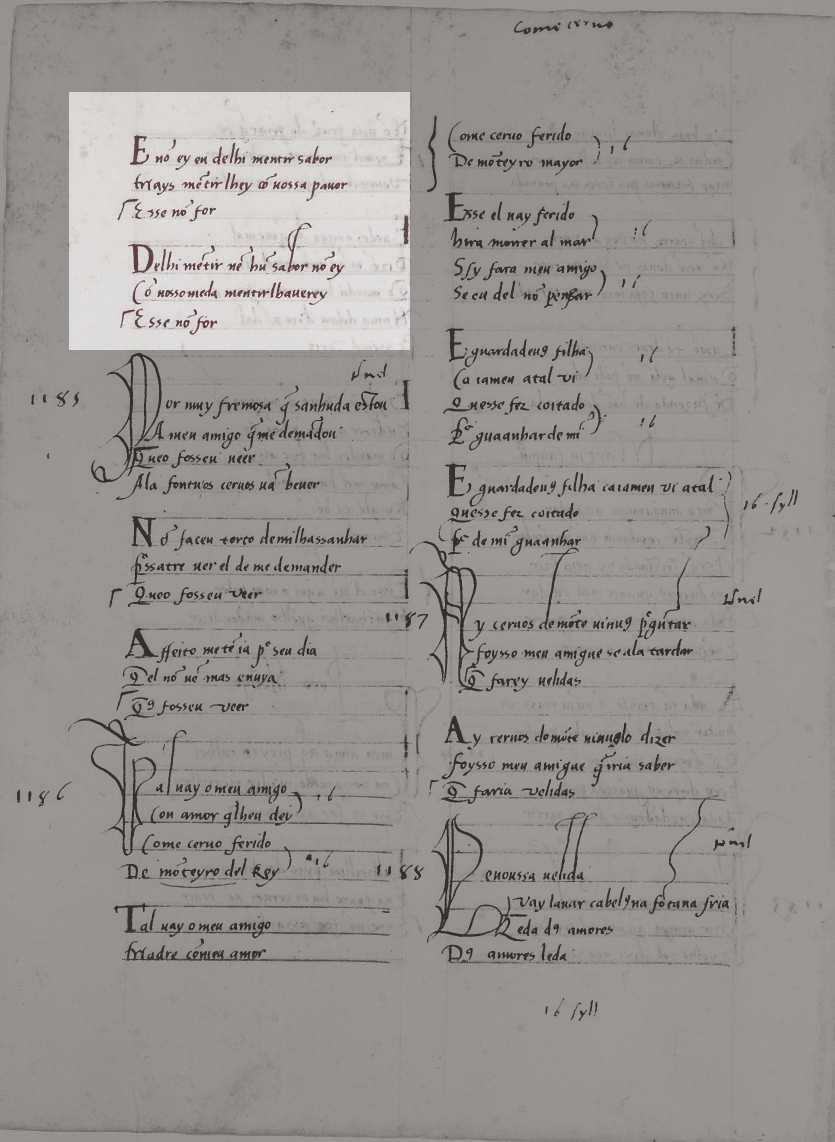 Comecerno
E nō ey eu delhi mentir sabor
Mays mētirlhey cō uossa pauor
Esse nō for
Delhi mētir nē hū sabor nō ey
Cō uossomeda mentirlhauerey
Esse nō for
1185
Por muy fremosa q̄ sanhuda estou
A meu amigo q̄me demādou
Queo fosseu ueer
Ala fontuos ceruos uā beuer
Nō faceu torto demilhassanhar
p̄ssatre uer el de me demander
Queo fosseu veer
Affeito me tē ia pᵉ seu dia
Q̄el nō uē mas enuya
Q̄9 fosseu veer
1186
Tal uay o meu amigo
Con amor q̄lheu dei
Come ceruo ferido
De mōteyro del Rey
16
16
Tal uay o meu amigo
Madre cōmeu amor
Come ceruo ferido
De mōteyro mayor
16
Esse el uay ferido
hira morrer al mar
16
Ssy fara meu amigo
Se eu del nō penssar
16
E guardadeu9 filha
Ca iameu atal vi
16
Quesse fez coitado
Pᵉ guaanhar de mī
16
E guardadeu9 filha caiameu vi atal
Quesse fez coitado
Pᵉ de mī guaanhar
16 syll
1187
Ay ceruos demōte uinu9 p̄gūtar
foysso meu amigue se ala tardar
Q̄ farey uelidas
Ay ceruos domōte uinuolo dizer
foysso meu amigue q̄rria saber
Q̄ faria uelidas
1188
Leuoussa uelida
Vay lauar cabel9 na fōtana fria
Leda d9 amores
D9 amores leda
16 syll